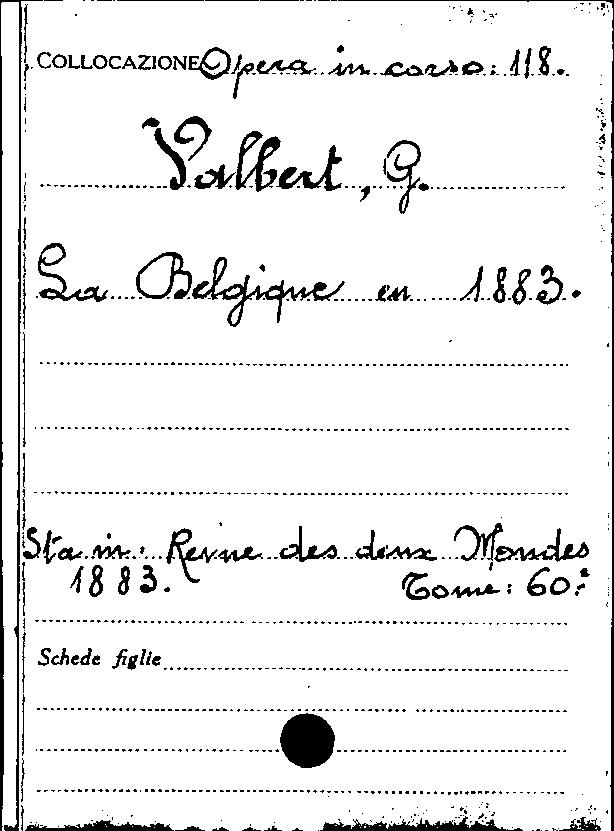 COLLOCAZIONE Opera in corso: 118.
Valbert, G.
La Belgique en 1883.
Sta in: Revue des deux Mondes
1883. Tome: 60.e
Schede figlie